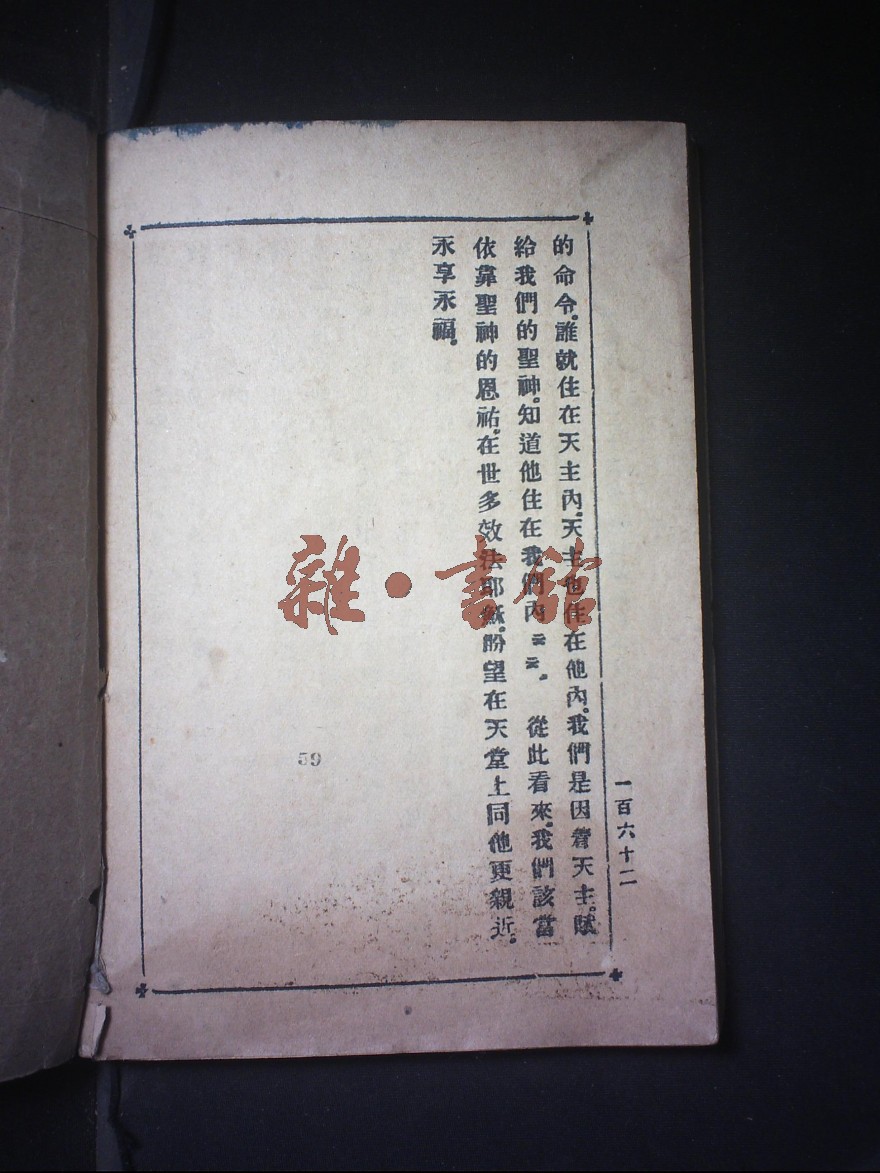 的命令。誰就住在天主內。天主也住在他內。我們是因着天主。賦
給我們的聖神。知道他住在我們內云云。　從此看來。我們該當
依靠聖神的恩祐。在世多效法耶穌。盼望在天堂上同他更親近。
永享永福。
一百六十二
59
雜·書館